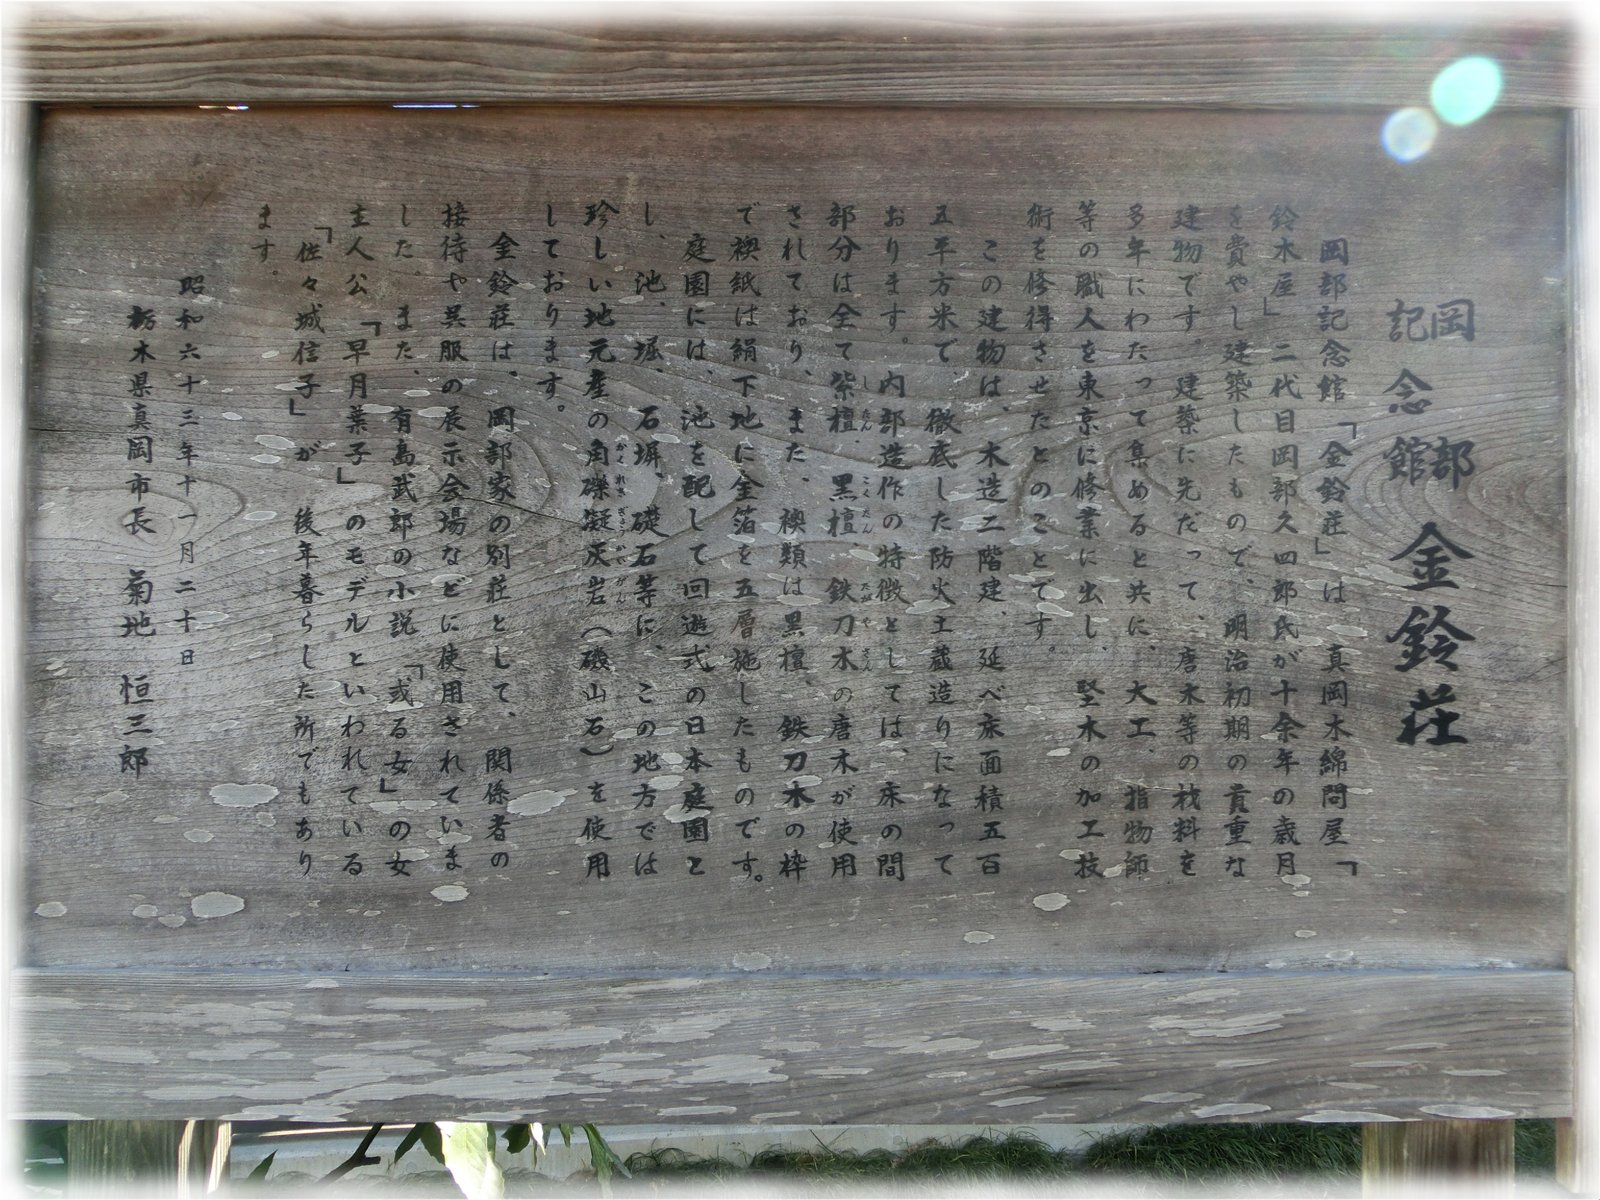 岡部
記念館
金鈴荘
岡部記念館「金鈴荘」は、真岡木綿問屋「
鈴木屋」二代目岡部久四郎氏が十余年の歳月
を費やし建築したもので、明治初期の貴重な
建物です。建築に先だって、唐木等の材料を
多年にわたって集めると共に、大工、指物師
等の職人を東京に修業に出し、堅木の加工技
術を修得させたとのことです。
この建物は、木造二階建、延べ床面積五百
五平方米で、徹底した防火土蔵造りになって
おります。内部造作の特徴としては、床の間
部分は全て紫檀、黒檀、鉄刀木の唐木が使用
したん こくたん たがやさん
されており、また、襖類は黒檀、鉄刀木の枠
で襖紙は絹下地に金箔を五層施したものです。
庭園には、池を配して回遊式の日本庭園と
し、池、堀、石塀、礎石等に、この地方では
珍しい地元産の角礫凝灰岩（磯山石）を使用
かくれきぎょうかいがん
しております。
金鈴荘は、岡部家の別荘として、関係者の
接待や呉服の展示会場などに使用されていま
した。また、有島武郎の小説「或る女」の女
主人公「早月葉子」のモデルといわれている
「佐々城信子」が、後年暮らした所でもあり
ます。
昭和六十三年十一月二十日
栃木県真岡市長 菊地 恒三郎